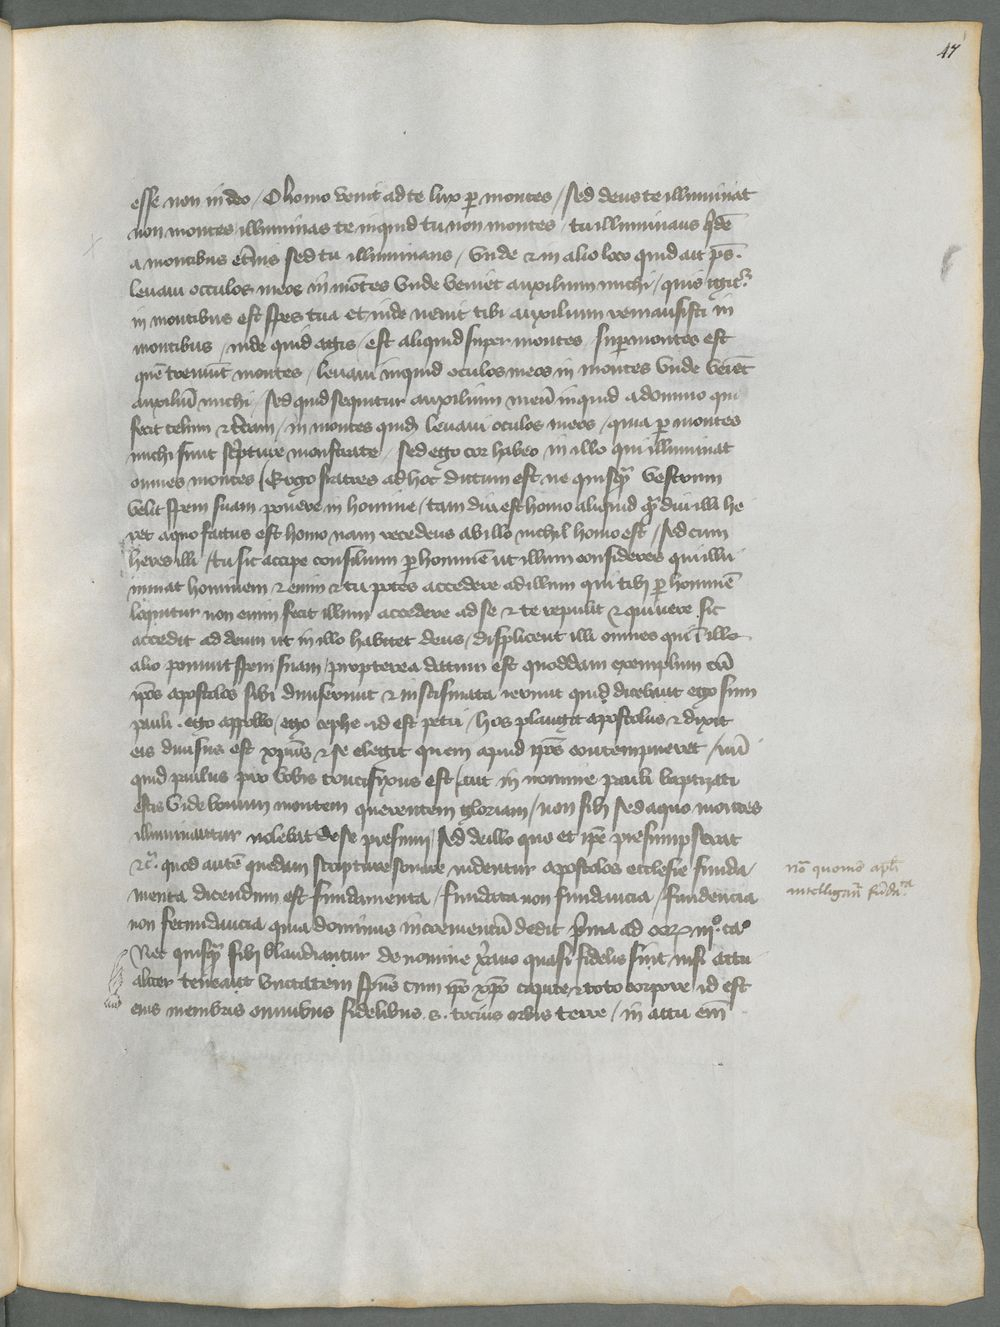 47
esse non in deo / O homo venit ad te lux p montes / sed deus te illuminat
non montes illuminas te inquid tu non montes / tu illuminans q̄dē
a montibus et̄nis sed tu illuminans / Vnde & in alio loco quid ait ps̄.
leuaui occulos meos in mōtes Vnde veniet auxilium michi / quis igit᷑
in montibus est spes tua et inde uenit tibi auxilium remansisti in
montibus / uide quid agis / est aliquid super montes / sup montes est
quē tremūt montes / leuaui inquid oculos meos in montes Vnde veīet
auxiliū michi / sed quid sequitur auxilium meū inquid a domino qui
fecit celum & t̄ram / in montes quidē leuaui oculos meos / quia p montes
michi sunt sc̄pture monstrate / sed ego cor habeo in illo qui illuminat
omnes montes / Ergo fratres ad hoc dictum est ne quisq̄ vestrum
velit spem suam ponere in homine / tam diu est homo aliquid q̄ diu illi he
ret a quo factus est homo nam recedens ab illo nichil homo est / sed cum
heres illi / tu sic accipe consilium p hominē ut illum consideres qui illu
minat hominem & enim & tu potes accedere ad illum qui tibi p hominē
loquitur non enim fecit illum accedere ad se & te repulit & qui vere sic
accedit ad deum ut in illo habitet deus / displicent illi omnes qui ī illo
alio ponunt spem suam / propterea datum est quoddam exemplum cū
ip̄os apostolos sibi diuiserunt & in scismata ierunt quidē dicebant ego sum
pauli . ego appollo / ego cephe . id est petri / hos plangit apostolus & dixit
eis diuisus est xp̄us & se elegit quem apud ip̄os contempneret / nū
quid paulus pro vobis crucifixus est / aut in nomine pauli baptizati
estis Vide bonum montem querentem gloriam / non sibi sed a quo montes
illuminantur nolebat de se presumi / sed de illo quo et ip̄e presumpserat
&c̄. quod autē quedam scripture sonare uidentur apostolos ecclesie funda/
menta dicendum est fundamenta / fundata non fundancia / fundencia
non fecundancia quia dominus incrementū dedit p̄ma ad cor̄ iijº. caº
Nec quisq̄ sibi blandiantur de nomine xp̄iano quasi fidelis sint / nisi actu
aliter teneant vnitatem sp̄us cum ip̄o xp̄o capite & toto corpore id est
eius membris omnibus fidelibus . s. tocius orbis terre / in actu em̄
nō quomō apl̄i
intelligant᷑ fūdāᵗᵃ